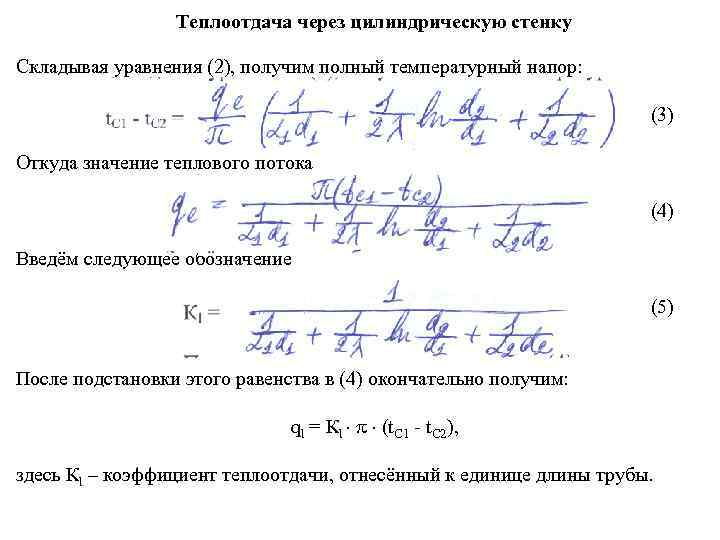 Теплоотдача через цилиндрическую стенку
Складывая уравнения (2), получим полный температурный напор:
t_C1 - t_C2 = q_ℓ/π (1/(α₁d₁) + 1/(2λ) ln d₂/d₁ + 1/(α₂d₂)) (3)
Откуда значение теплового потока
q_ℓ = π(t_C1 - t_C2) / (1/(α₁d₁) + 1/(2λ) ln d₂/d₁ + 1/(α₂d₂)) (4)
Введём следующее обозначение
K_l = 1 / (1/(α₁d₁) + 1/(2λ) ln d₂/d₁ + 1/(α₂d₂)) (5)
После подстановки этого равенства в (4) окончательно получим:
q_l = K_l · π · (t_C1 - t_C2),
здесь K_l – коэффициент теплоотдачи, отнесённый к единице длины трубы.